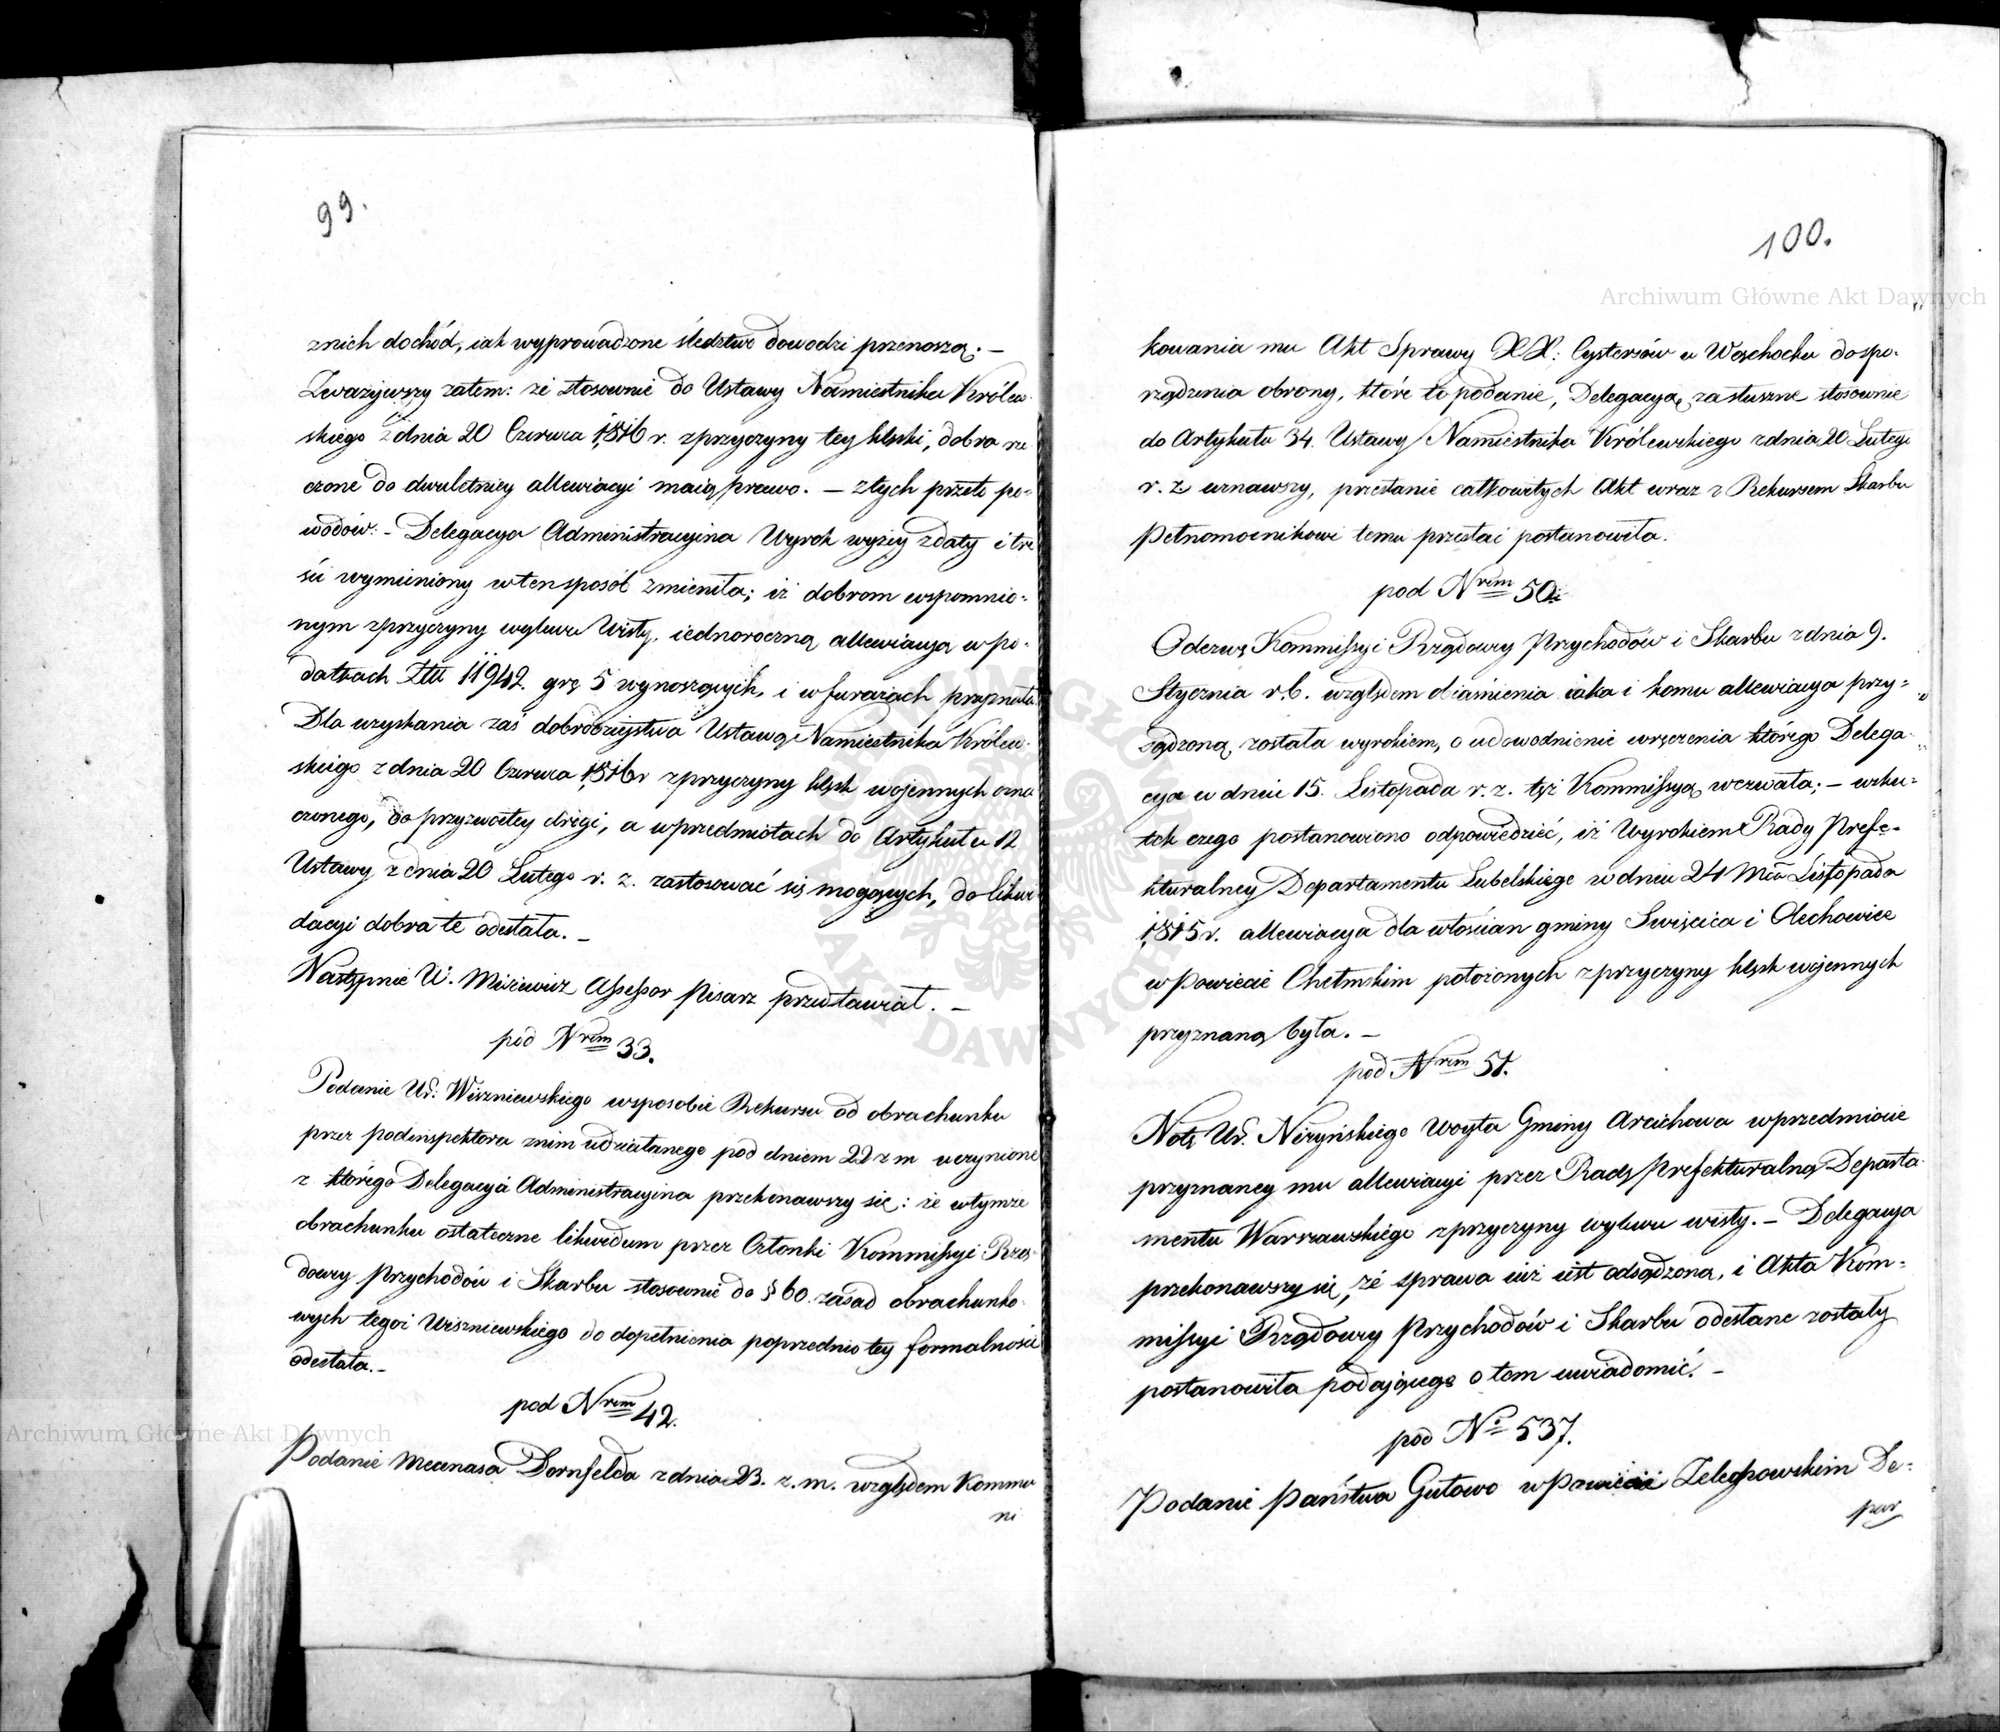 99.
znich dochód, iak wyprowadzone śledztwo dowodzi przenoszą. —
Zważywszy zatem: że stosownie do Ustawy Namiestnika Królew-
skiego z dnia 20 Czerwca 1816 r. zprzyczyny tey klęski, dobra rze
czone do dwuletniey allewiacyi maią prawo. — z tych przeto po-
wodów: - Delegacya Administracyina Wyrok wyżey z daty i tre
ści wymieniony w ten sposób zmieniła; iż dobrom wspomnio-
nym zprzyczyny wylewu Wisły, iednoroczną allewiacyą w po-
datkach Złł 11942. grę 5 wynoszących, i w furażach przyznała
Dla uzyskania zaś dobrodzieystwa Ustawą Namiestnika Królew-
skiego z dnia 20 Czerwca 1816 r zprzyczyny klęsk wojennych ozna
czonego, do przyzwoitey drogi, a w przedmiotach do Artykułu 12
Ustawy z dnia 20 Lutego r. z. zastosować się mogących, do likwi
dacyi dobra te odesłała. —
Następnie U. Assessor Pisarz przedstawiał. —
pod Nrem 33.
Podanie Ur: Wiszniewskiego wsposobie Rekursu od obrachunku
przez podinspektora znim udziałanego pod dniem 22 z m uczynione
z którego Delegacya Administracyina przekonawszy się: że w tymże
obrachunku ostateczne likwidum przez Członki Kommissyi Rzą-
dowey Przychodów i Skarbu stosownie do § 60. zasad obrachunko-
wych tegoż Wiszniewskiego do dopełnienia poprzednio tey formalności
odesłała. —
pod Nrem 42.
Podanie Mecenasa Dornfelda z dnia 23. z. m. względem Kommu
ni
100.
kowania mu Akt Sprawy XX: Cystersów w Wąchocku do spo-
rządzenia obrony, które to podanie, Delegacya, za słuszne stosownie
do Artykułu 34. Ustawy Namiestnika Królewskiego z dnia 20 Lutego
r. z uznawszy, przesłanie całkowitych Akt wraz z Rekursem Skarbu
Pełnomocnikowi temu przesłać postanowiła.
pod Nrem 50.
Odezwę Kommissyi Rządowey Przychodów i Skarbu z dnia 9.
Stycznia r. b. względem objaśnienia iaka i komu allewiacya przy-
sądzoną została wyrokiem, o udowodnienie wręczenia którego Delega-
cya w dniu 15. Listopada r. z. też Kommissyą wezwała; — wsku-
tek czego postanowiono odpowiedzieć, iż Wyrokiem Rady Prefe-
kturalney Departamentu Lubelskiego w dniu 24 Mca Listopada
1815 r. allewiacya dla włościan gminy Swięcica i Olechowice
w Powiecie Chełmskim położonych zprzyczyny klęsk wojennych
przyznaną była. —
pod Nrem 51.
Notę Ur. Niżyńskiego Woyta Gminy Arciechowa wprzedmiocie
przyznaney mu allewiacyi przez Radę Prefekturalną Departa-
mentu Warszawskiego zprzyczyny wylewu wisły. — Delegacya
przekonawszy się, że sprawa iuż iest odsądzona, i Akta Kom-
missyi Rządowey Przychodów i Skarbu odesłane zostały
postanowiła podającego o tem uwiadomić. —
pod Nr 537.
Podanie Państwa Gutowo w Powiecie Zelechowskim De-
par
Archiwum Główne Akt Dawnych
Archiwum Główne Akt Dawnych
ARCHIWUM GŁÓWNE AKT DAWNYCH